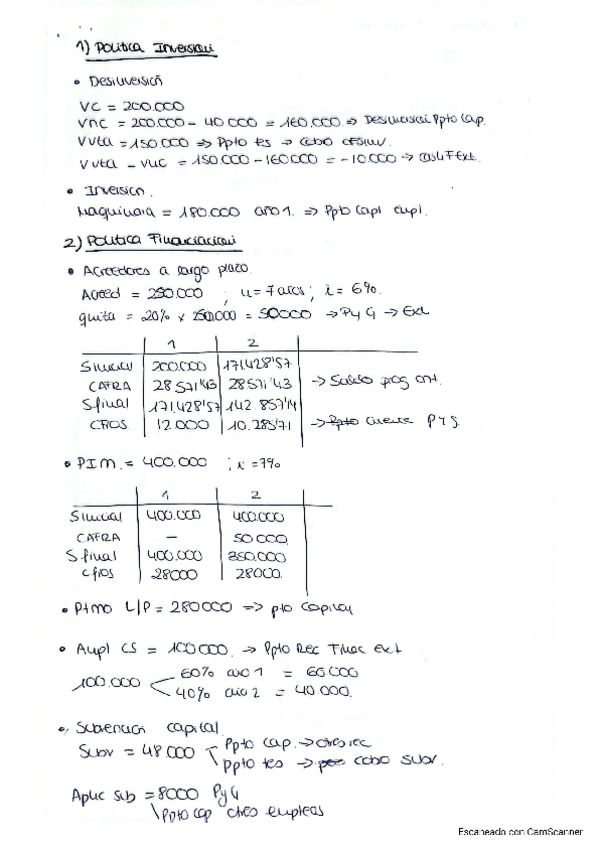 1) Politica Inversion
• Desinversión
VC = 200.000
VNC = 200.000 - 40 000 = 160.000 => Desinversion Ppto Cap.
V vta = 150.000 => Ppto tes -> Cobo
V vta - VNC = 150.000 - 160000 = -10.000 -> Ext.
• Inversion.
Maquinaia = 180.000 año 1. => Ppto Capl
2) Politica Financiacion
• Acreedores a largo plazo.
Acreed = 250.000 ; n = 7 años ; i = 6%.
quita = 20% x 250.000 = 50000 -> PyG -> Ext
1 2
S inicial 200.000 171.428'57
CAFRA 28571'43 28571'43 -> Saldo
S final 171.428'57 142 857'14
CFROS 12 000 10.285'71 -> Ppto Cuenta PyG.
• PIM = 400.000 ; i = 7%
1 2
S inicial 400.000 400.000
CAFRA — 50 000.
S final 400.000 350.000
Cfros 28000 28000.
• Ptmo L/P = 280000 => pto Capital
• Aupl CS = 100000. -> Ppto Rec Finac ext
100.000 60% año 1 = 60 000
40% año 2 = 40.000.
• Subvencion capital
Subv = 48.000 Ppto cap. ->
Ppto tes -> cobo subv.
Aplic sub = 8000 PyG
Ppto cap empleos
Escaneado con CamScanner